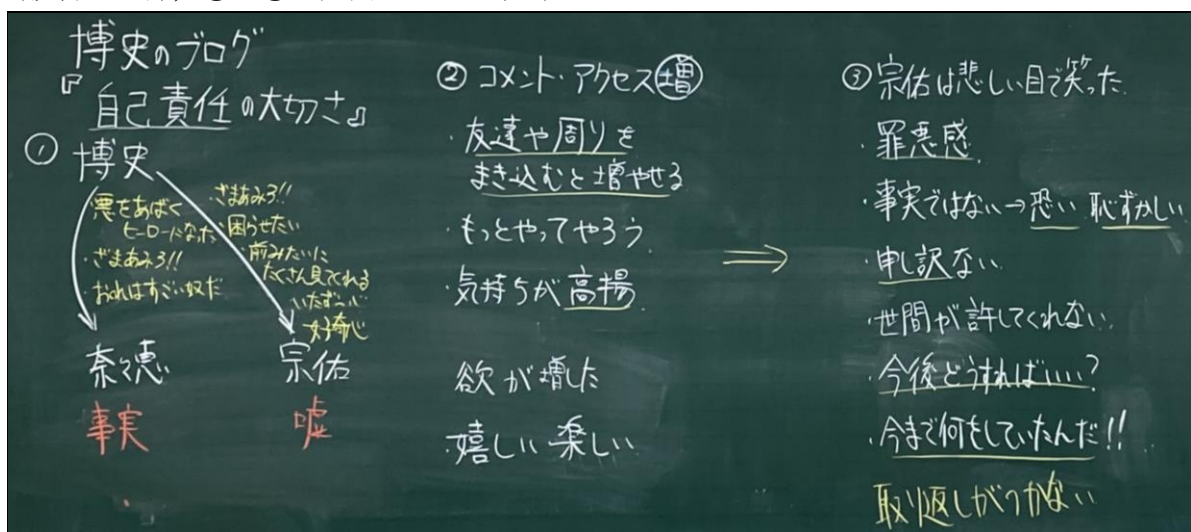 博史のブログ
『自己責任の大切さ』
① 博史
・悪をあばく
ヒーローになった
・ざまあみろ!!
・おれはすごい奴だ
・ざまあみろ!!
・困らせたい
・前みたいに
たくさん見てくれる
いたずら心
好奇心
奈々恵
宗佑
事実
嘘
② コメント・アクセス増
・友達や周りを
まき込むと増やせる
・もっとやってやろう
・気持ちが高揚
欲が増した
・嬉しい 楽しい
⇒
③ 宗佑は悲しい目で笑った.
・罪悪感
・事実ではない→恐い 恥ずかしい
・申し訳ない
・世間が許してくれない
・今後どうすればいい?
・今まで何をしていたんだ!!
取り返しがつかない